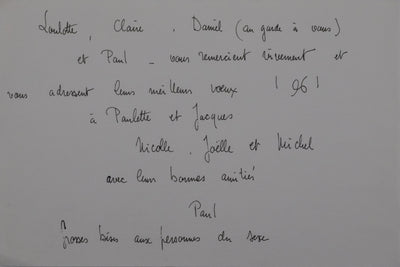 Loulotte, Claire, Daniel (au garde à vous)
et Paul - vous remercient vivement et
vous adressent leurs meilleurs voeux ! 96 !
à Paulette et Jacques
Nicolle, Joëlle et Michel
avec leurs bonnes amitiés
Paul
Grosses bises aux personnes du sexe